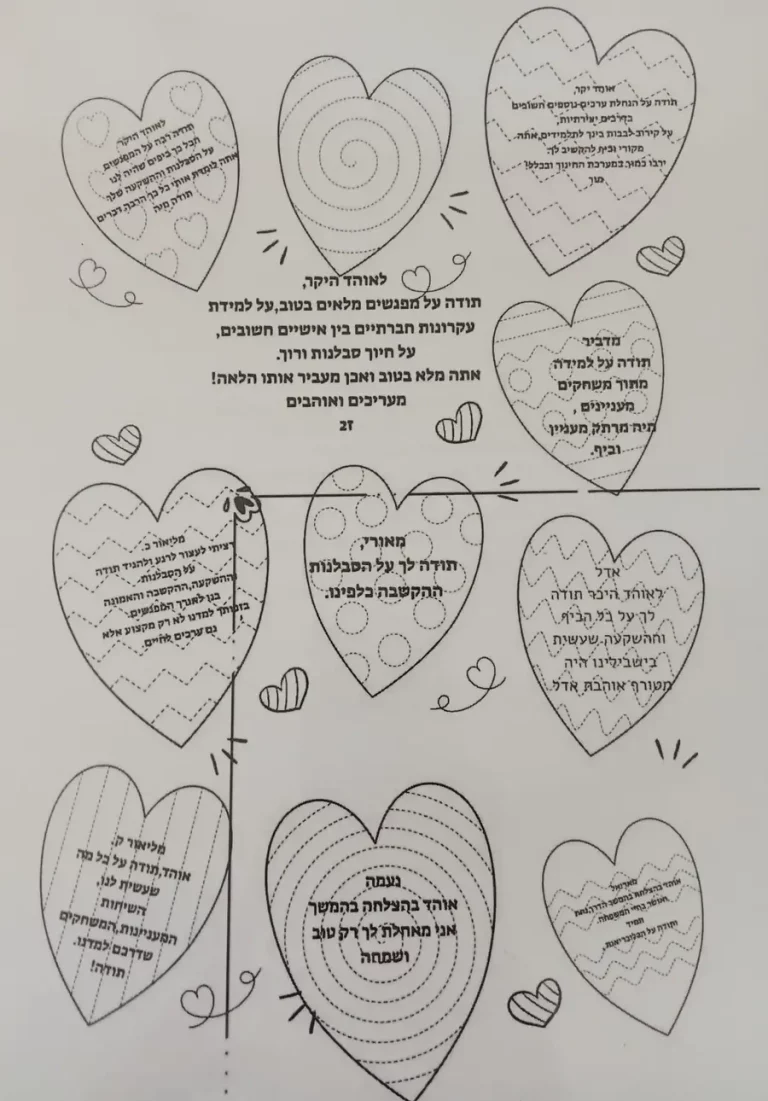 אוהד יקר,
תודה על הנחלת ערכים נוספים חשובים
בדרכים יצירתיות,
על קירוב לבבות בינך לתלמידים,אתה
מקורי וכיף להקשיב לך.
ירבו כמוך במערכת החינוך ובכלל!
לאוהד היקר
תודה רבה על המפגשים
הכל כך כיפים שהיה לנו
על הסבלנות וההשקעה שלך
אתה לימדת אותי כל כך הרבה דברים
תודה
לאוהד היקר,
תודה על מפגשים מלאים בטוב,על למידת
עקרונות חברתיים בין אישיים חשובים,
על חיוך סבלנות ורוך.
אתה מלא בטוב ואכן מעביר אותו הלאה!
מעריכים ואוהבים
ז2
מדביר
תודה על למידה
מתוך משחקים
מעניינים ,
היה מרתק מעניין
וכיף.
מליאור כ.
רציתי לעצור לרגע ולהגיד תודה
על הסבלנות.
וההשקעה,ההקשבה והאמונה
בנו לאורך המפגשים.
בזכותך למדנו לא רק מקצוע אלא
גם ערכים לחיים.
מאורי,
תודה לך על הסבלנות
ההקשבה כלפינו.
אדל
לאוהד היכר תודה
לך על כל הכיף
וההשקעה שעשית
בישבילינו היה
מטורף אוהבת אדל.
מליאור ק.
אוהד,תודה על כל מה
שעשית לנו,
השיחות
המעניינות,המשחקים
שדרכם למדנו.
תודה!
נעמה
אוהד בהצלחה בהמשך
אני מאחלת לך רק טוב
ושמחה
אוהד בהצלחה בהמשך הדרך,
ואושר בחיי המשפחה.
תמיד
ותודה על